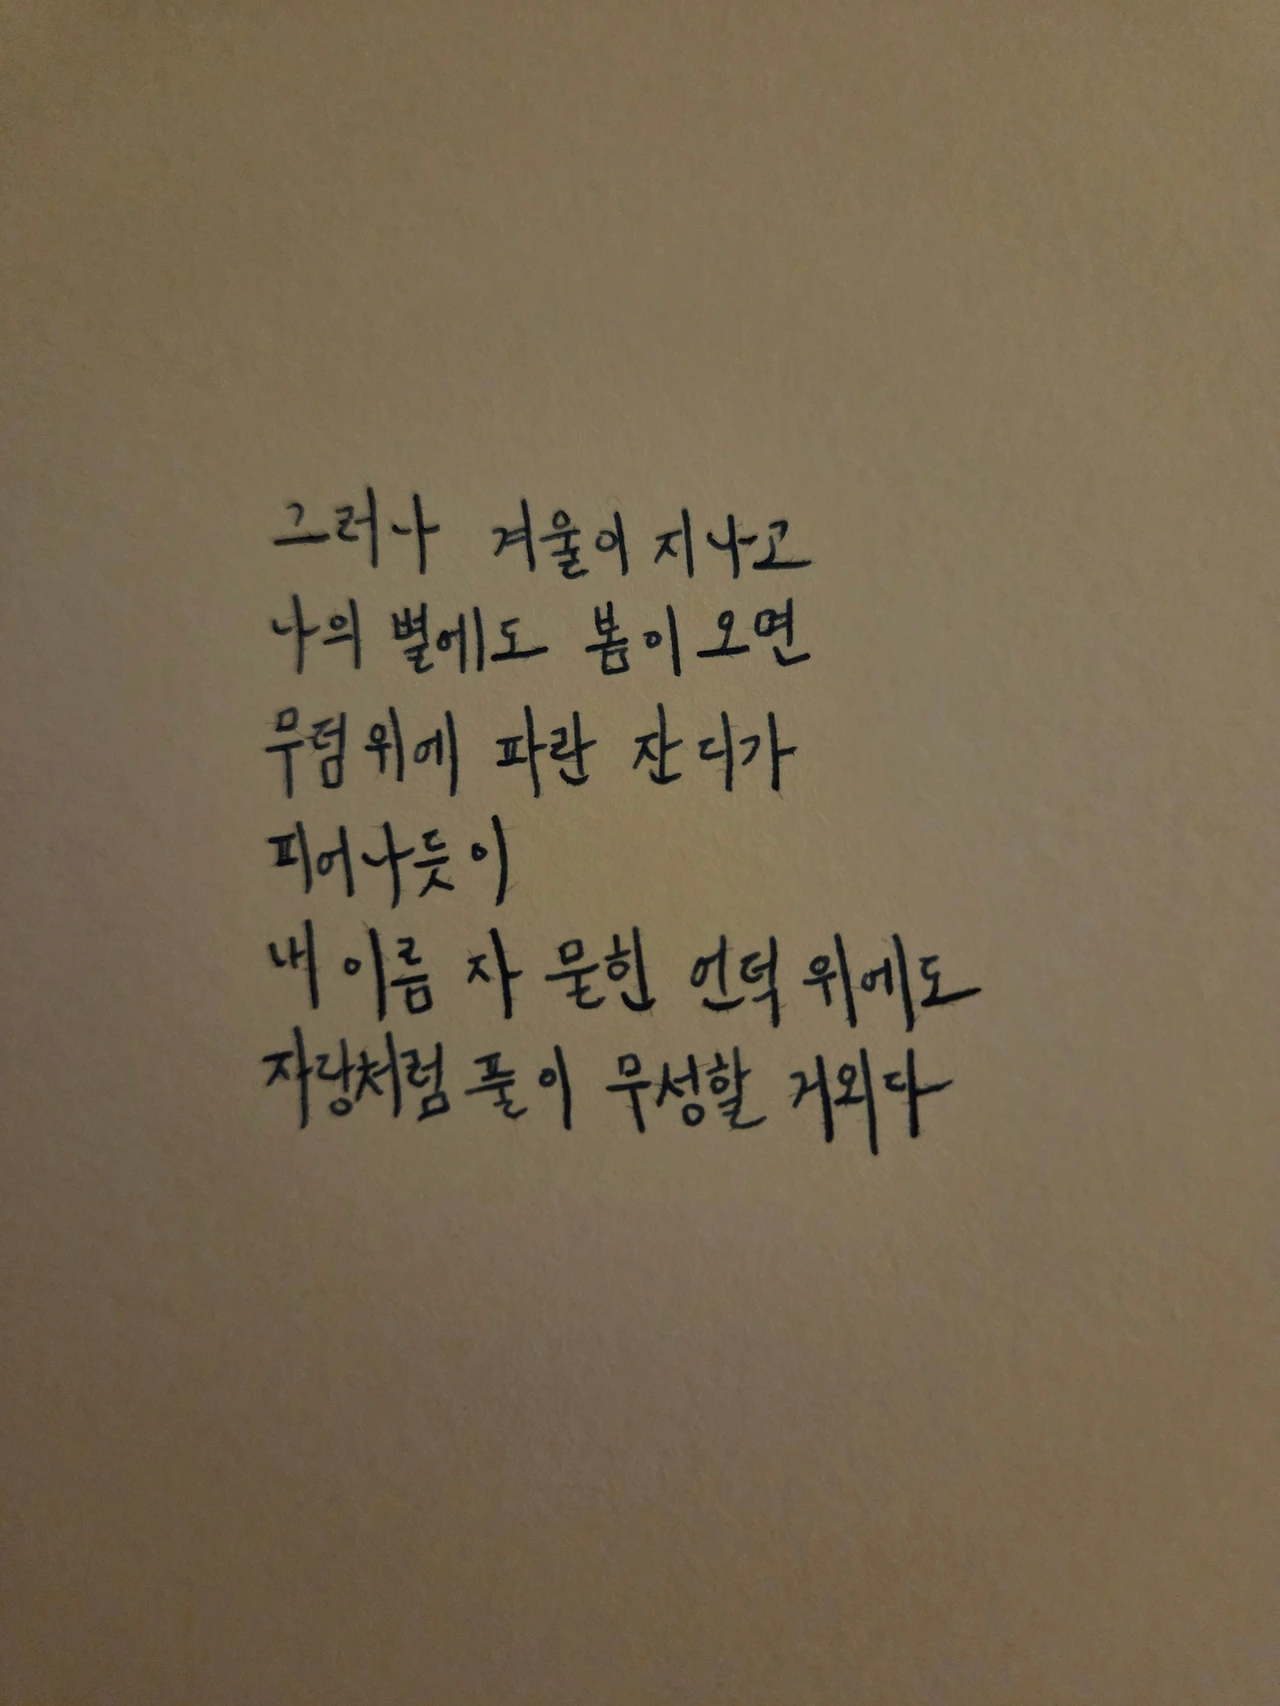 그러나 겨울이 지나고
나의 별에도 봄이 오면
무덤 위에 파란 잔디가
피어나듯이
내 이름 자 묻힌 언덕 위에도
자랑처럼 풀이 무성할 거외다